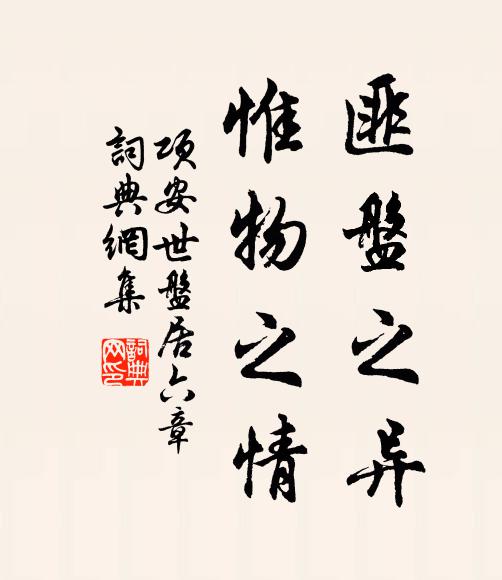 匪盤之异
惟物之情
项安世盤居六章
詞典網集
詞典網印